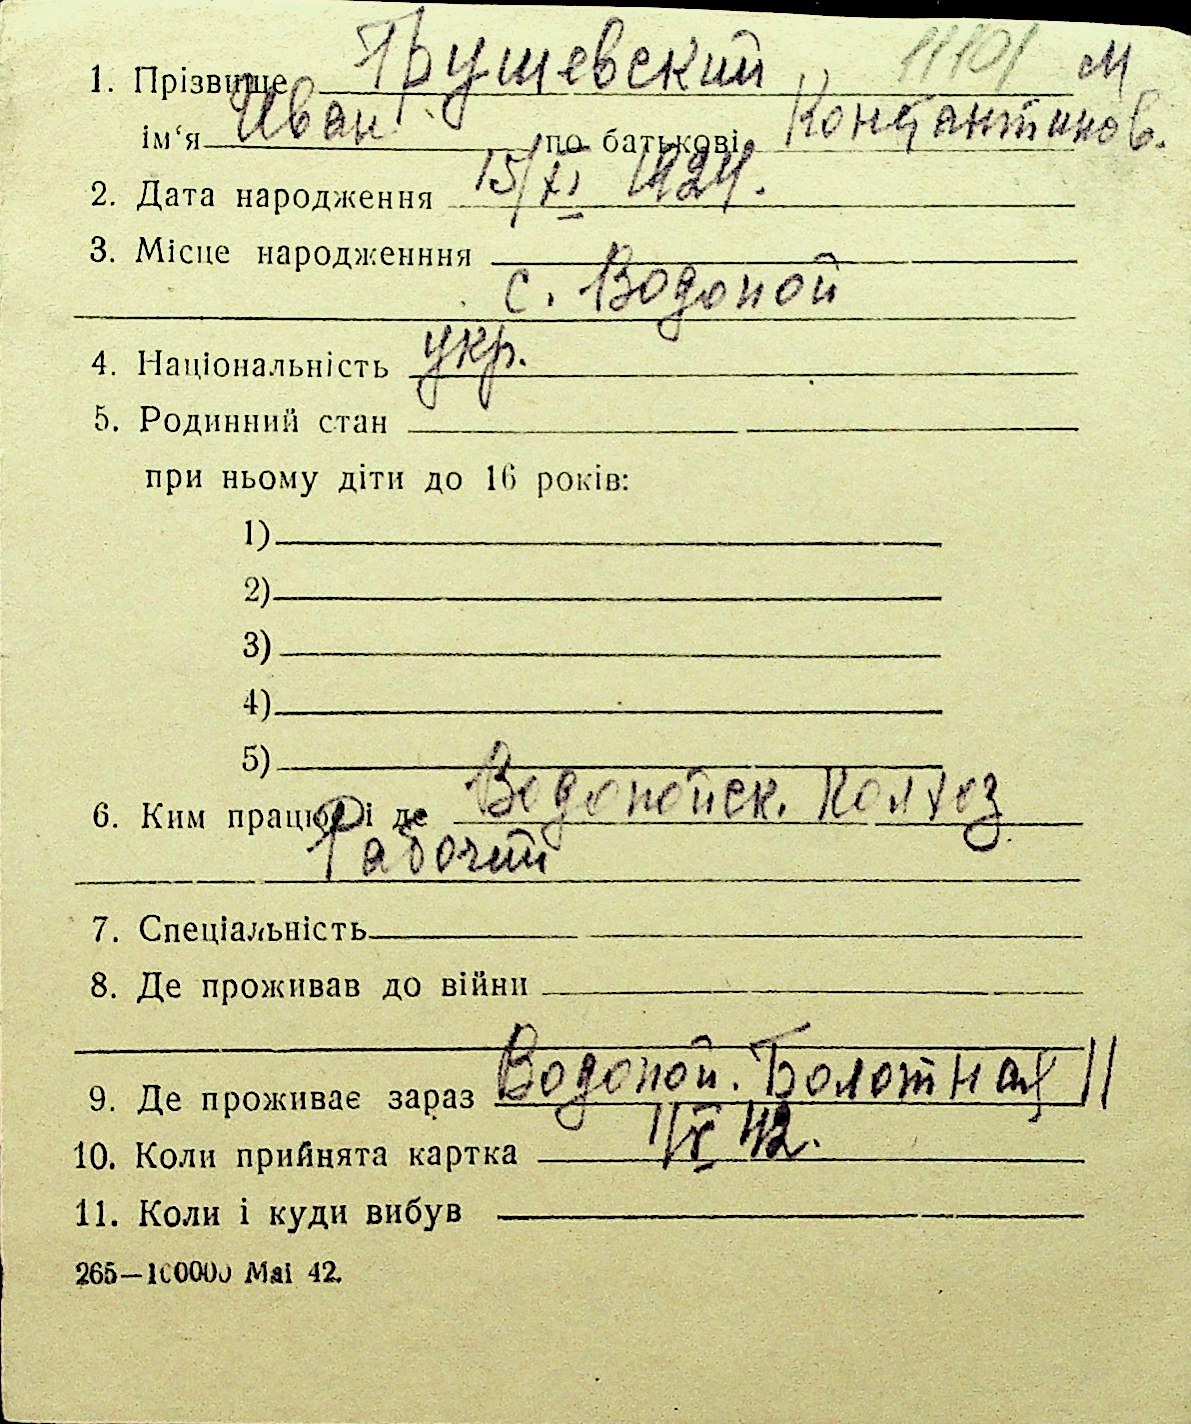 1. Прізвище Грушевский 11101 М
ім‘я Иван по батькові Константинов.
2. Дата народження 15/XI 1924.
3. Місце народженння
с. Водопой
4. Національність укр.
5. Родинний стан
при ньому діти до 16 років:
1)
2)
3)
4)
5)
6. Ким працює і де Водопойск. Колхоз
Рабочий
7. Спеціальність
8. Де проживав до війни
9. Де проживає зараз Водопой. Болотная 11
10. Коли прийнята картка 1/X 42.
11. Коли і куди вибув
265—100000 Mai 42.